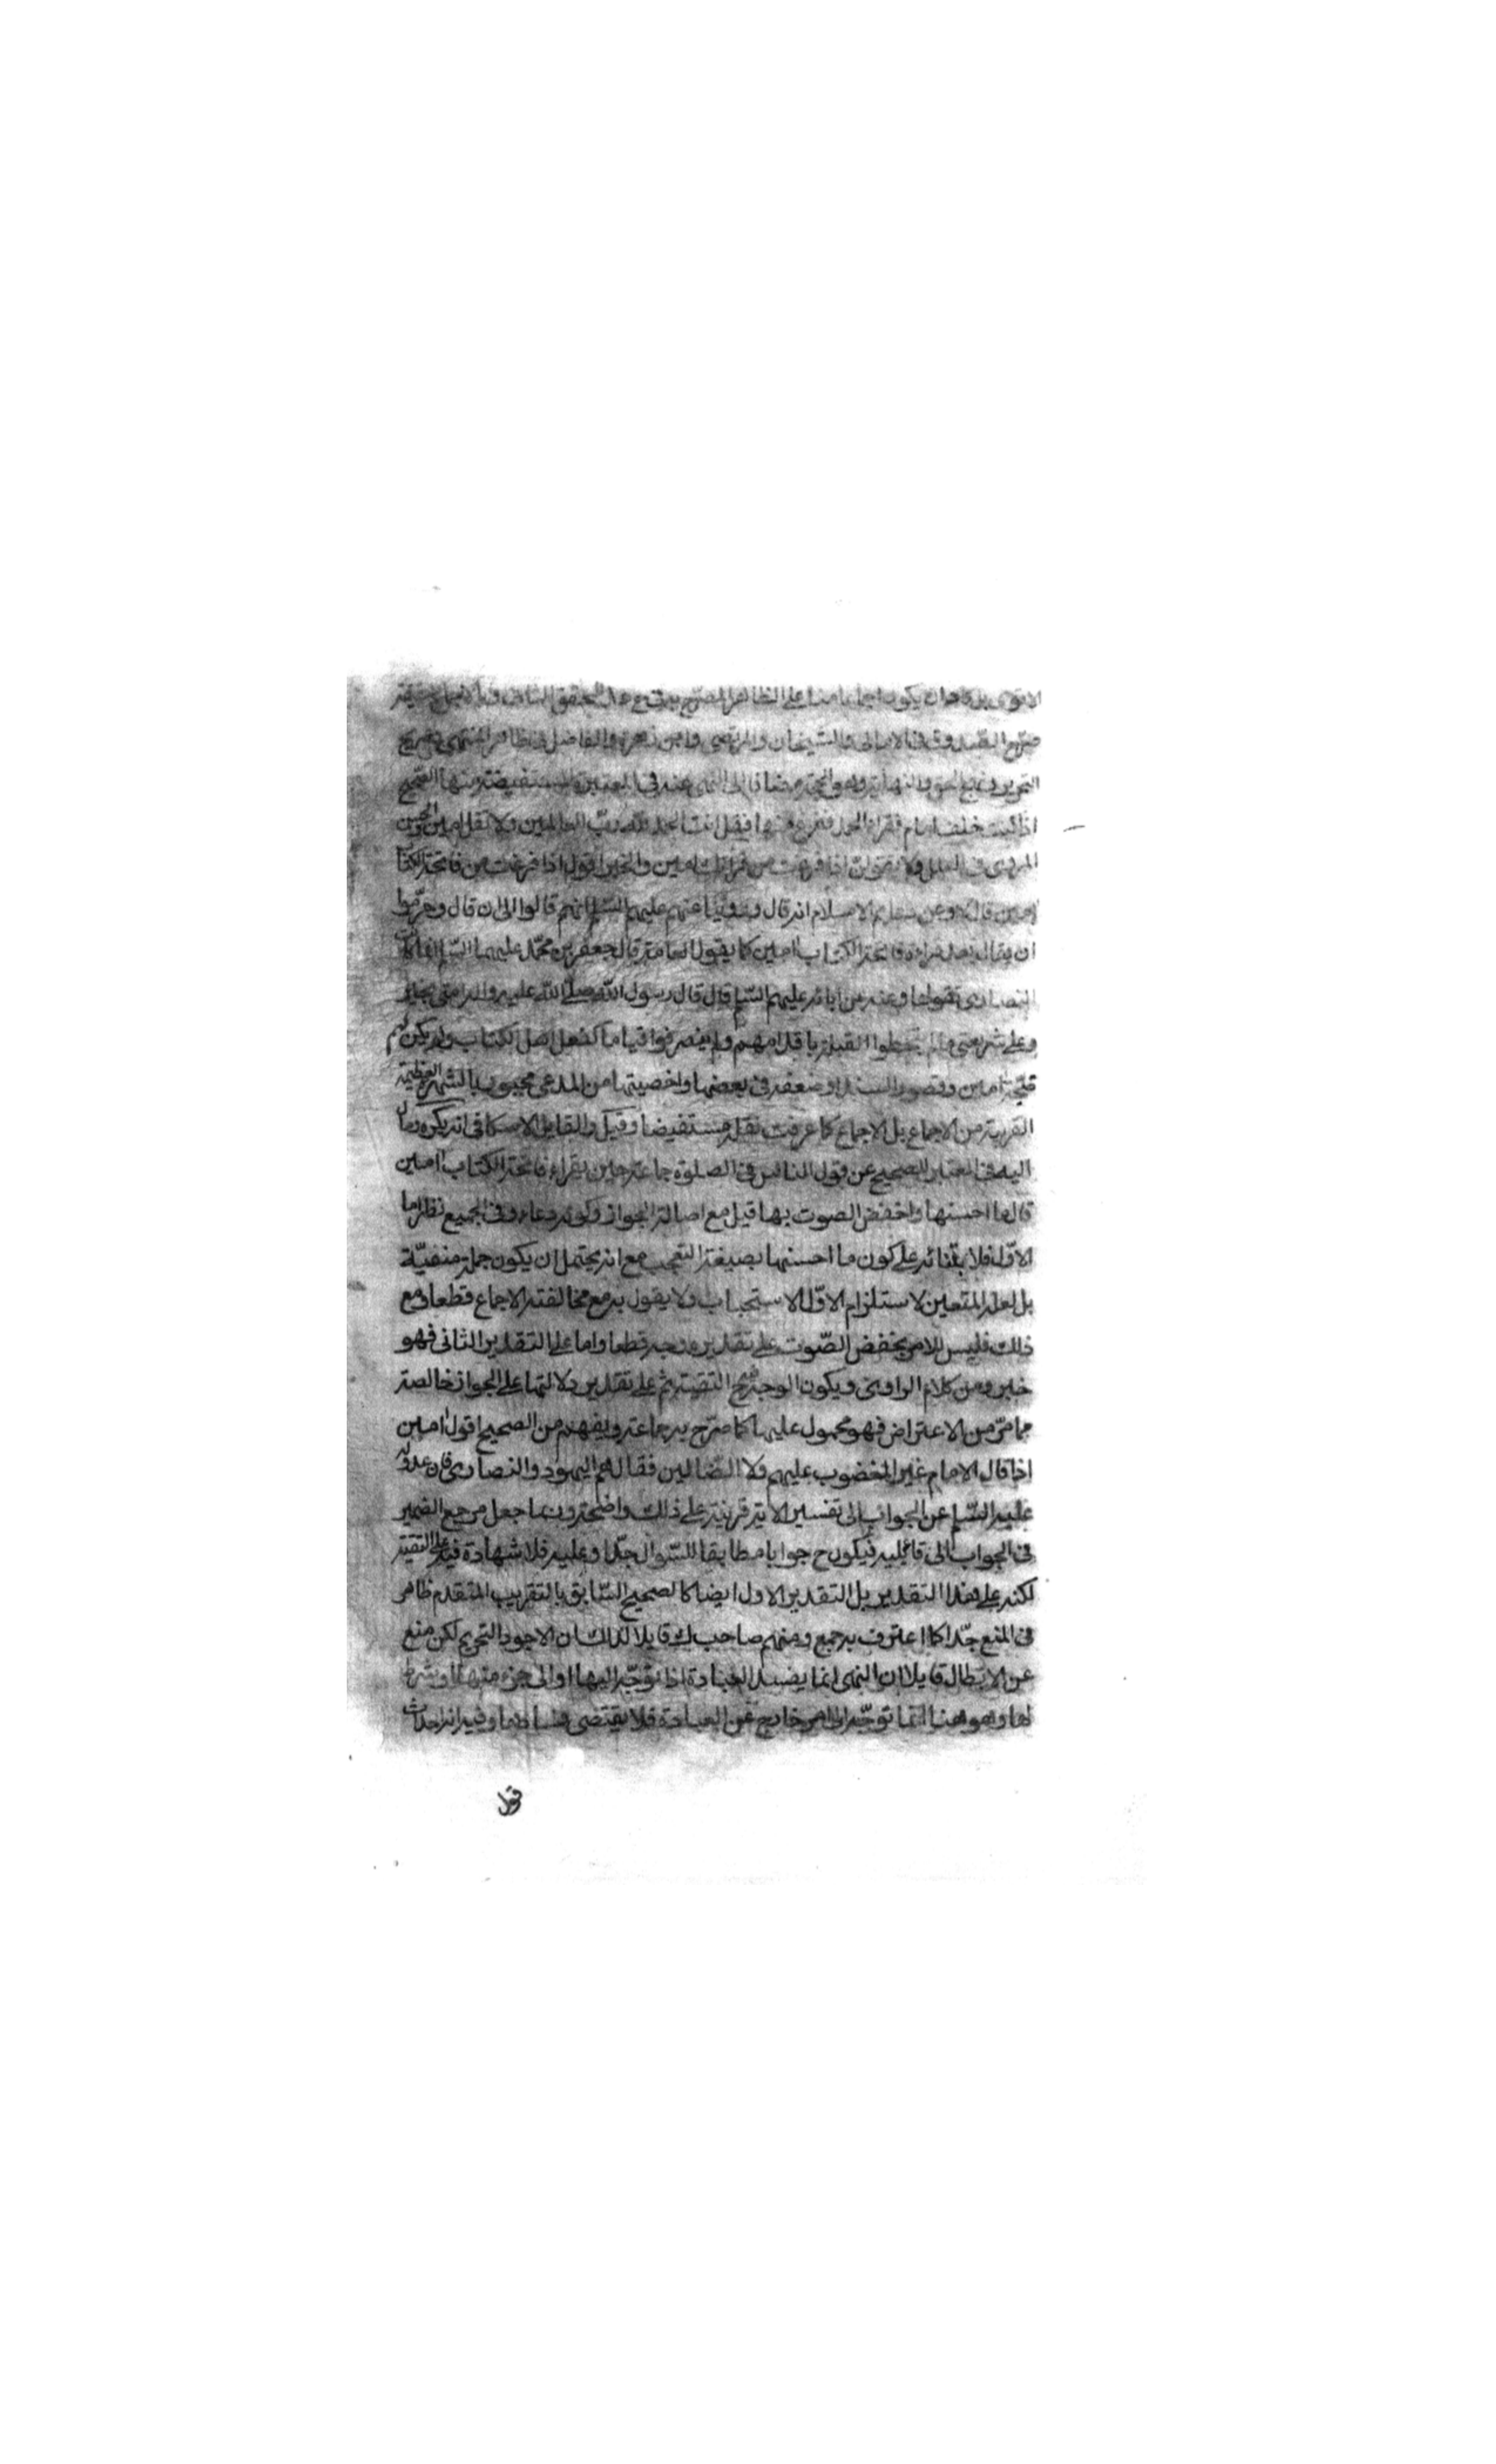 الاقوى بل كاد ان يكون اجماعا منا على الظاهر المصرح به في
صرح الصدوق في الامالى والشيخان والمرتضى وابن زهرة والفاضل في ظاهر المنتهى وصريح
التحرير ونهج الحق والنهاية وهو الحجة مضافا الى النهى عنه في المعتبرة المستفيضة منها الصحيح
اذا كنت خلف امام فقرا الحمد ففرغ منها فقل انت الحمد لله رب العالمين ولا تقل امين والحسن
المروى في العلل ولا تقولن اذا فرغت من قرائتك امين والخبر اقول اذا فرغت من فاتحة الكتاب
امين قال لا وعن دعايم الاسلام انه قال وروينا عنهم عليهم السلم انهم قالوا الى ان قال وحرموا
ان يقال بعد قراءة فاتحة الكتاب امين كما يقول العامة قال جعفر بن محمد عليهما السلم انما كانت
النصارى تقولها وعنه عن ابائه عليهم السلم قال قال رسول الله صلى الله عليه واله امتى بخير
وعلى شريعتى ما لم يتخطوا القبلة باقدامهم ولم ينصرفوا قياما كفعل اهل الكتاب ولم يكن لهم
ضجة امين وقصور السند او ضعفه فى بعضها واخصيتها من المدعى مجبور بالشهرة العظيمة
القريبة من الاجماع بل الاجماع كما عرفت نقله مستفيضا وقيل والقايل الاسكافى انه يكره ومال
اليه فى المعتبر للصحيح عن قول الناس فى الصلوة جماعة حين يقراء فاتحة الكتاب امين
قال ما احسنها واخفض الصوت بها قيل مع اصالة الجواز وكونه دعاء وفى الجميع نظر اما
الاول فلابتنائه على كون ما احسنها بصيغة التعجب مع انه يحتمل ان يكون جملة منفية
بل لعله المتعين لاستلزام الاول الاستحباب ولا يقول به مع مخالفته الاجماع قطعا ومع
ذلك فليس للامر بخفض الصوت على تقديره وجه قطعا واما على التقدير الثانى فهو
خبر ومن كلام الراوى ويكون الوجه فيه ح التقية ثم على تقدير دلالتها على الجواز خالصة
مما مر من الاعتراض فهو محمول عليها كما صرح به جماعة ويفهم من الصحيح اقول امين
اذا قال الامام غير المغضوب عليهم ولا الضالين فقال هم اليهود والنصارى فان عدوله
عليه السلم عن الجواب الى تفسير الاية قرينة على ذلك واضحة وربما جعل مرجع الضمير
فى الجواب الى قائليه فيكون ح جوابا مطابقا للسوال جدا وعليه فلا شهادة فيه على التقية
لكنه على هذا التقدير بل التقدير الاول ايضا كالصحيح السابق بالتقريب المتقدم ظاهر
فى المنع جدا كما اعترف به جمع ومنهم صاحب ك قايلا لذلك ان الاجود التحريم لكن منع
عن الابطال قايلا ان النهى انما يفسد العبادة اذا توجه اليها او الى جزء منها او شرط
لها وهو هنا انما توجه الى امر خارج عن العبادة فلا يقتضى فسادها وفيه انه احداث
قول